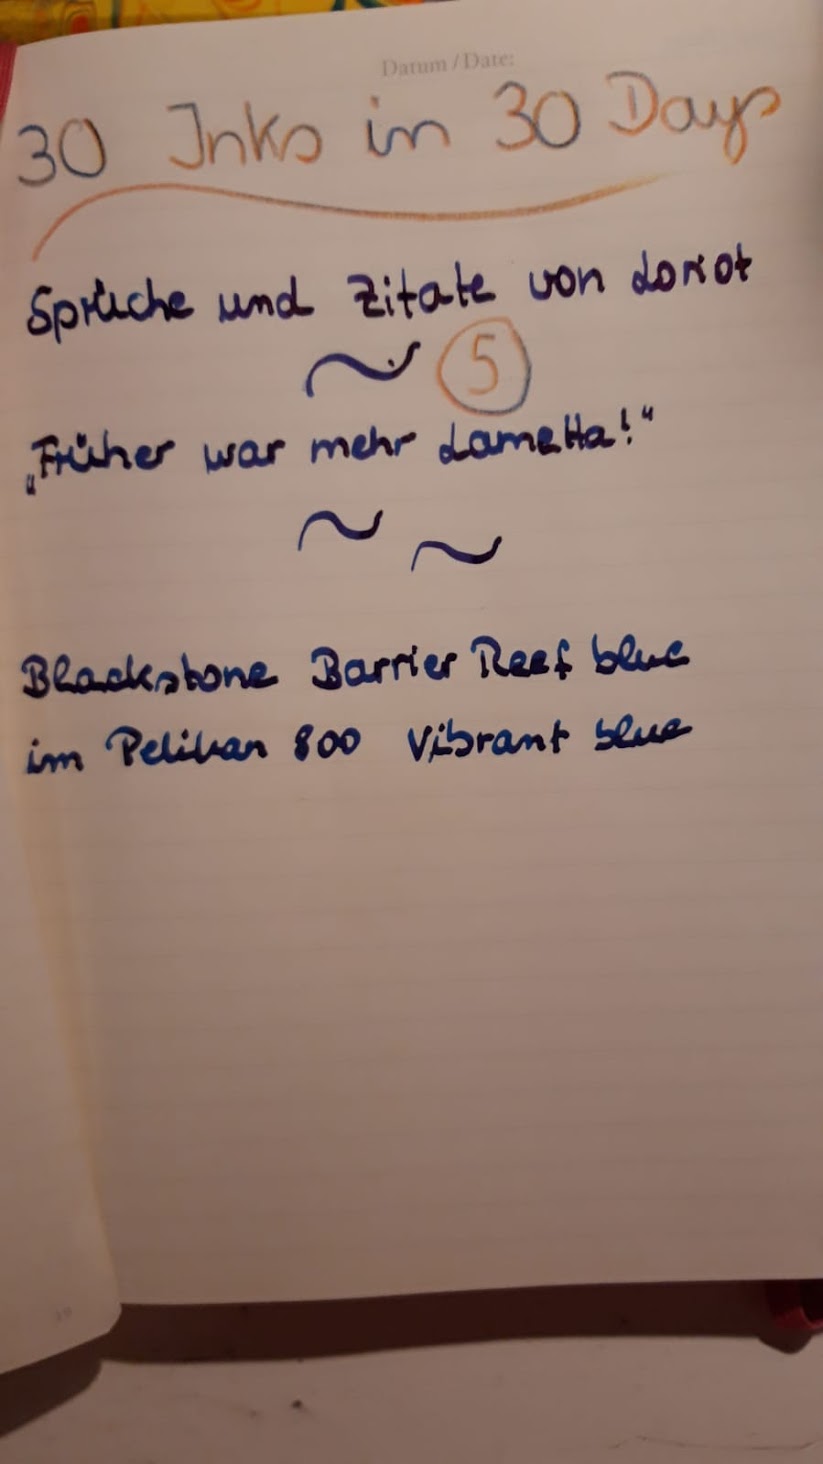 Datum / Date:
30 Inks in 30 Days
Sprüche und Zitate von Loriot
5
„Früher war mehr Lametta!“
Blackstone Barrier Reef blue
im Pelikan 800 Vibrant blue
19